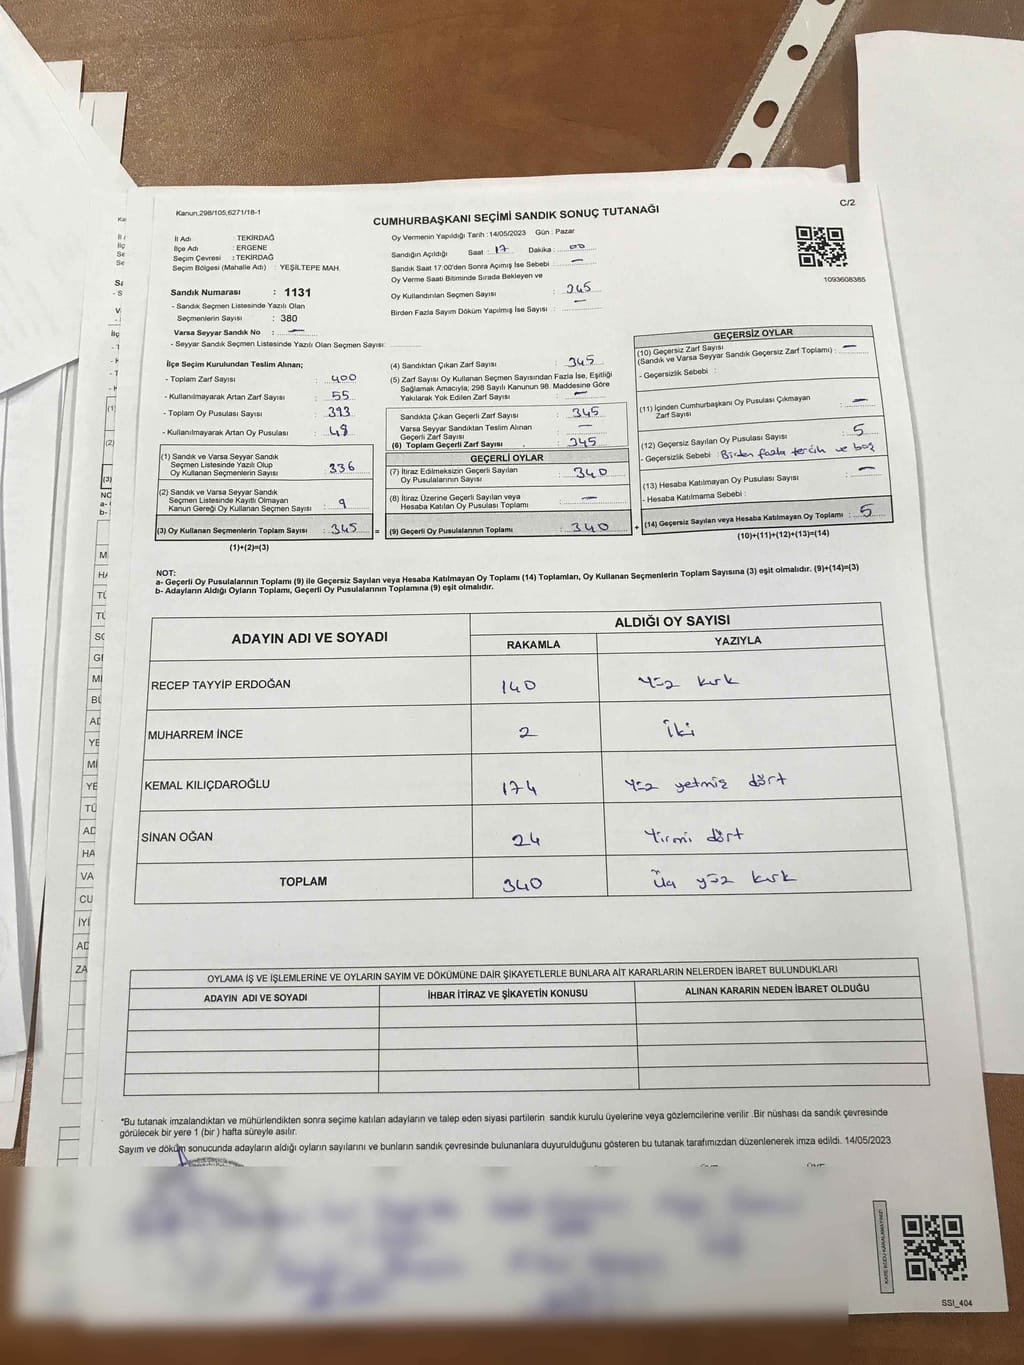 Kanun,298/105,6271/18-1
C/2
CUMHURBAŞKANI SEÇİMİ SANDIK SONUÇ TUTANAĞI
İl Adı : TEKİRDAĞ
İlçe Adı : ERGENE
Seçim Çevresi : TEKİRDAĞ
Seçim Bölgesi (Mahalle Adı) : YEŞİLTEPE MAH.
Sandık Numarası : 1131
- Sandık Seçmen Listesinde Yazılı Olan
Seçmenlerin Sayısı : 380
Varsa Seyyar Sandık No : —
- Seyyar Sandık Seçmen Listesinde Yazılı Olan Seçmen Sayısı:
Oy Vermenin Yapıldığı Tarih :14/05/2023 Gün : Pazar
Sandığın Açıldığı Saat : 17 Dakika : 00
Sandık Saat 17:00'den Sonra Açımış İse Sebebi : —
Oy Verme Saati Bitiminde Sırada Bekleyen ve
Oy Kullandırılan Seçmen Sayısı : 345
Birden Fazla Sayım Döküm Yapılmış İse Sayısı : —
1093608365
İlçe Seçim Kurulundan Teslim Alınan;
- Toplam Zarf Sayısı : 400
- Kullanılmayarak Artan Zarf Sayısı : 55
- Toplam Oy Pusulası Sayısı : 393
- Kullanılmayarak Artan Oy Pusulası : 48
(1) Sandık ve Varsa Seyyar Sandık
Seçmen Listesinde Yazılı Olup
Oy Kullanan Seçmenlerin Sayısı : 336
(2) Sandık ve Varsa Seyyar Sandık
Seçmen Listesinde Kayıtlı Olmayan
Kanun Gereği Oy Kullanan Seçmen Sayısı : 9
(3) Oy Kullanan Seçmenlerin Toplam Sayısı : 345 =
(1)+(2)=(3)
(4) Sandıktan Çıkan Zarf Sayısı : 345
(5) Zarf Sayısı Oy Kullanan Seçmen Sayısından Fazla İse, Eşitliği
Sağlamak Amacıyla; 298 Sayılı Kanunun 98. Maddesine Göre
Yakılarak Yok Edilen Zarf Sayısı : —
Sandıkta Çıkan Geçerli Zarf Sayısı : 345
Varsa Seyyar Sandıktan Teslim Alınan
Geçerli Zarf Sayısı : —
(6) Toplam Geçerli Zarf Sayısı : 345
GEÇERLİ OYLAR
(7) İtiraz Edilmeksizin Geçerli Sayılan
Oy Pusulasının Sayısı : 340
(8) İtiraz Üzerine Geçerli Sayılan veya
Hesaba Katılan Oy Pusulası Toplamı : —
(9) Geçerli Oy Pusulalarının Toplamı : 340 +
GEÇERSİZ OYLAR
(10) Geçersiz Zarf Sayısı
(Sandık ve Varsa Seyyar Sandık Geçersiz Zarf Toplamı) : —
- Geçersizlik Sebebi :
(11) İçinden Cumhurbaşkanı Oy Pusulası Çıkmayan
Zarf Sayısı : —
(12) Geçersiz Sayılan Oy Pusulası Sayısı : 5
- Geçersizlik Sebebi : Birden fazla tercih ve boş
(13) Hesaba Katılmayan Oy Pusulası Sayısı : —
- Hesaba Katılmama Sebebi :
(14) Geçersiz Sayılan veya Hesaba Katılmayan Oy Toplamı : 5
(10)+(11)+(12)+(13)=(14)
NOT:
a- Geçerli Oy Pusulalarının Toplamı (9) ile Geçersiz Sayılan veya Hesaba Katılmayan Oy Toplamı (14) Toplamları, Oy Kullanan Seçmenlerin Toplam Sayısına (3) eşit olmalıdır. (9)+(14)=(3)
b- Adayların Aldığı Oyların Toplamı, Geçerli Oy Pusulalarının Toplamına (9) eşit olmalıdır.
ADAYIN ADI VE SOYADI
ALDIĞI OY SAYISI
RAKAMLA YAZIYLA
RECEP TAYYİP ERDOĞAN 140 Yüz kırk
MUHARREM İNCE 2 İki
KEMAL KILIÇDAROĞLU 174 Yüz yetmiş dört
SİNAN OĞAN 24 Yirmi dört
TOPLAM 340 Üç yüz kırk
OYLAMA İŞ VE İŞLEMLERİNE VE OYLARIN SAYIM VE DÖKÜMÜNE DAİR ŞİKAYETLERLE BUNLARA AİT KARARLARIN NELERDEN İBARET BULUNDUKLARI
ADAYIN ADI VE SOYADI İHBAR İTİRAZ VE ŞİKAYETİN KONUSU ALINAN KARARIN NEDEN İBARET OLDUĞU
*Bu tutanak imzalandıktan ve mühürlendikten sonra seçime katılan adayların ve talep eden siyasi partilerin sandık kurulu üyelerine veya gözlemcilerine verilir .Bir nüshası da sandık çevresinde
görülecek bir yere 1 (bir ) hafta süreyle asılır.
Sayım ve döküm sonucunda adayların aldığı oyların sayılarını ve bunların sandık çevresinde bulunanlara duyurulduğunu gösteren bu tutanak tarafımızdan düzenlenerek imza edildi. 14/05/2023
KARE KODU KARALAMAYINIZ!
SSI_404